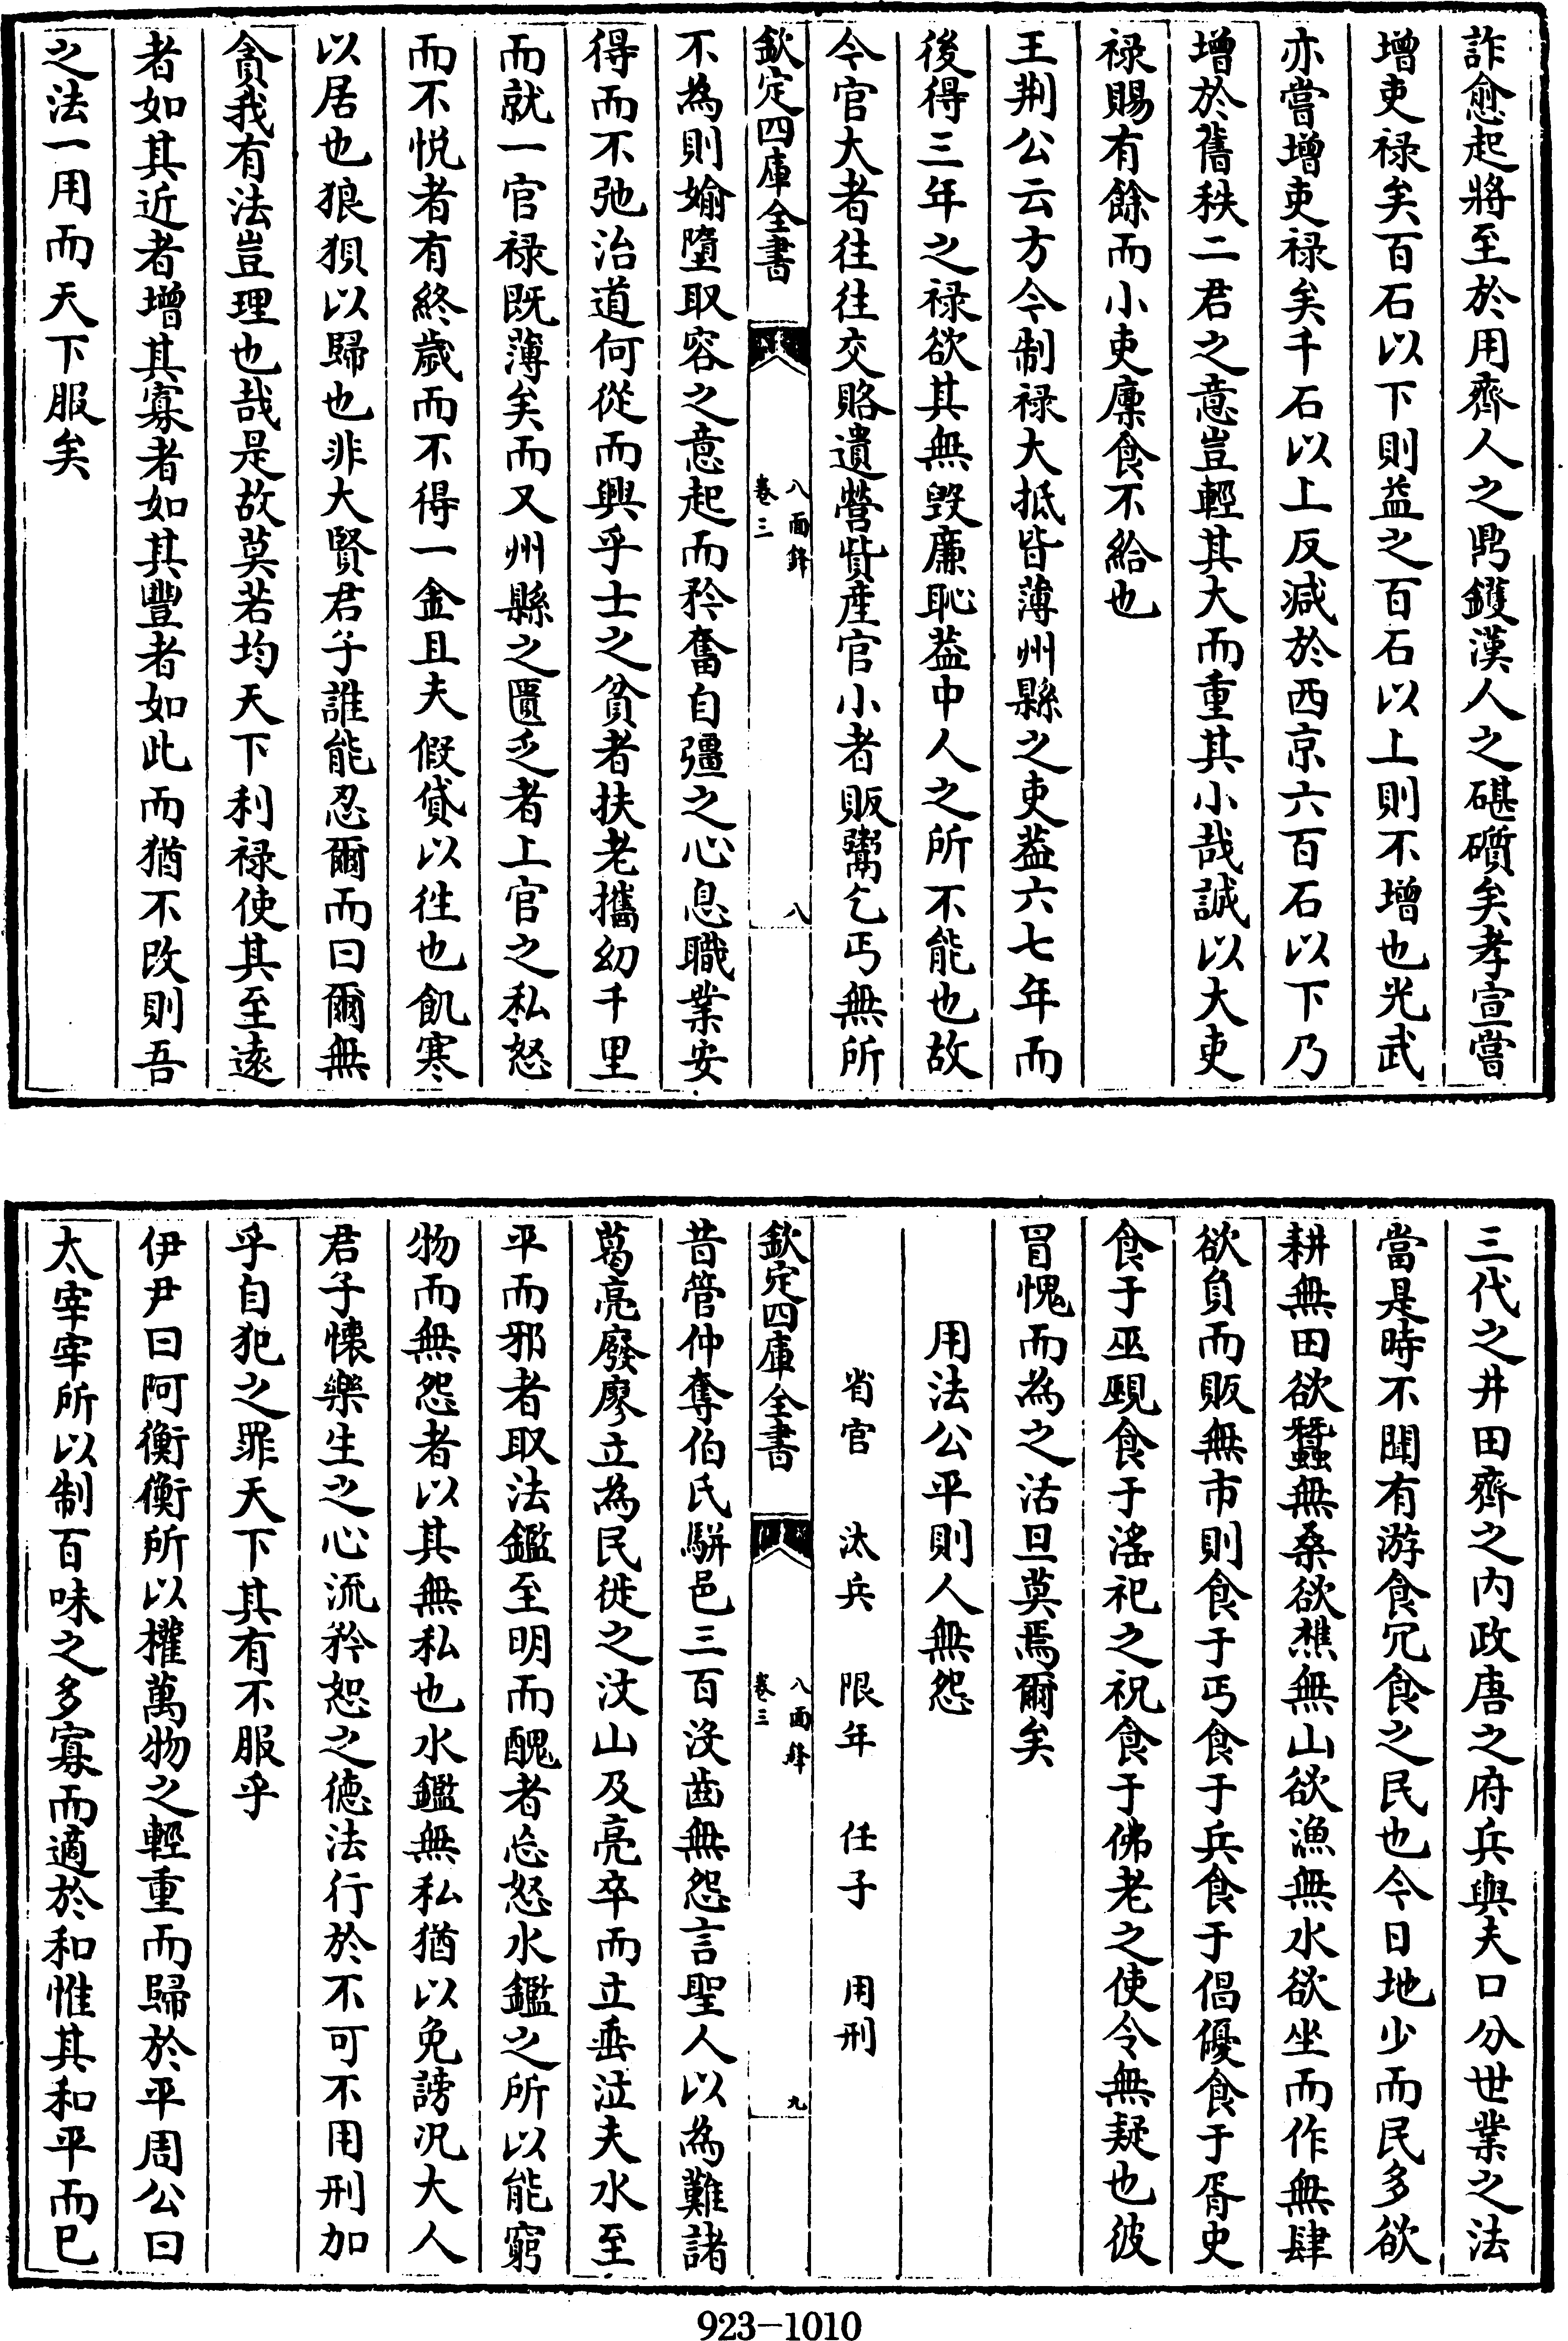 詐愈起將至於用齊人之鼎鑊漢人之碪礩矣孝宣嘗
增吏禄矣百石以下則益之百石以上則不增也光武
亦嘗增吏禄矣千石以上反減於西京六百石以下乃
增於舊秩二君之意豈輕其大而重其小哉誠以大吏
禄賜有餘而小吏廩食不給也
王荆公云方今制禄大抵皆薄州縣之吏葢六七年而
後得三年之禄欲其無毁廉恥葢中人之所不能也故
今官大者往往交賂遺營貲産官小者販鬻乞丐無所
欽定四庫全書
八面鋒
卷三
八
不為則媮墮取容之意起而矜奮自彊之心息職業安
得而不弛治道何從而興乎士之貧者扶老攜幼千里
而就一官禄既薄矣而又州縣之匱乏者上官之私怒
而不悦者有終歳而不得一金且夫假貸以徃也飢寒
以居也狼狽以歸也非大賢君子誰能忍爾而曰爾無
貪我有法豈理也哉是故莫若均天下利禄使其至逺
者如其近者增其寡者如其豐者如此而猶不改則吾
之法一用而天下服矣
三代之井田齊之内政唐之府兵與夫口分世業之法
當是時不聞有游食冗食之民也今日地少而民多欲
耕無田欲蠶無桑欲樵無山欲漁無水欲坐而作無肆
欲負而販無市則食于丐食于兵食于倡優食于胥史
食于巫覡食于滛祀之祝食于佛老之使令無疑也彼
冒愧而為之活旦莫焉爾矣
用法公平則人無怨
省官 汰兵 限年 任子 用刑
欽定四庫全書
八面鋒
卷三
九
昔管仲奪伯氏駢邑三百没齒無怨言聖人以為難諸
葛亮廢廖立為民徙之汶山及亮卒而立垂泣夫水至
平而邪者取法鑑至明而醜者忘怒水鑑之所以能窮
物而無怨者以其無私也水鑑無私猶以免謗況大人
君子懐樂生之心流矜恕之徳法行於不可不用刑加
乎自犯之罪天下其有不服乎
伊尹曰阿衡衡所以權萬物之輕重而歸於平周公曰
太宰宰所以制百味之多寡而適於和惟其和平而已
923-1010